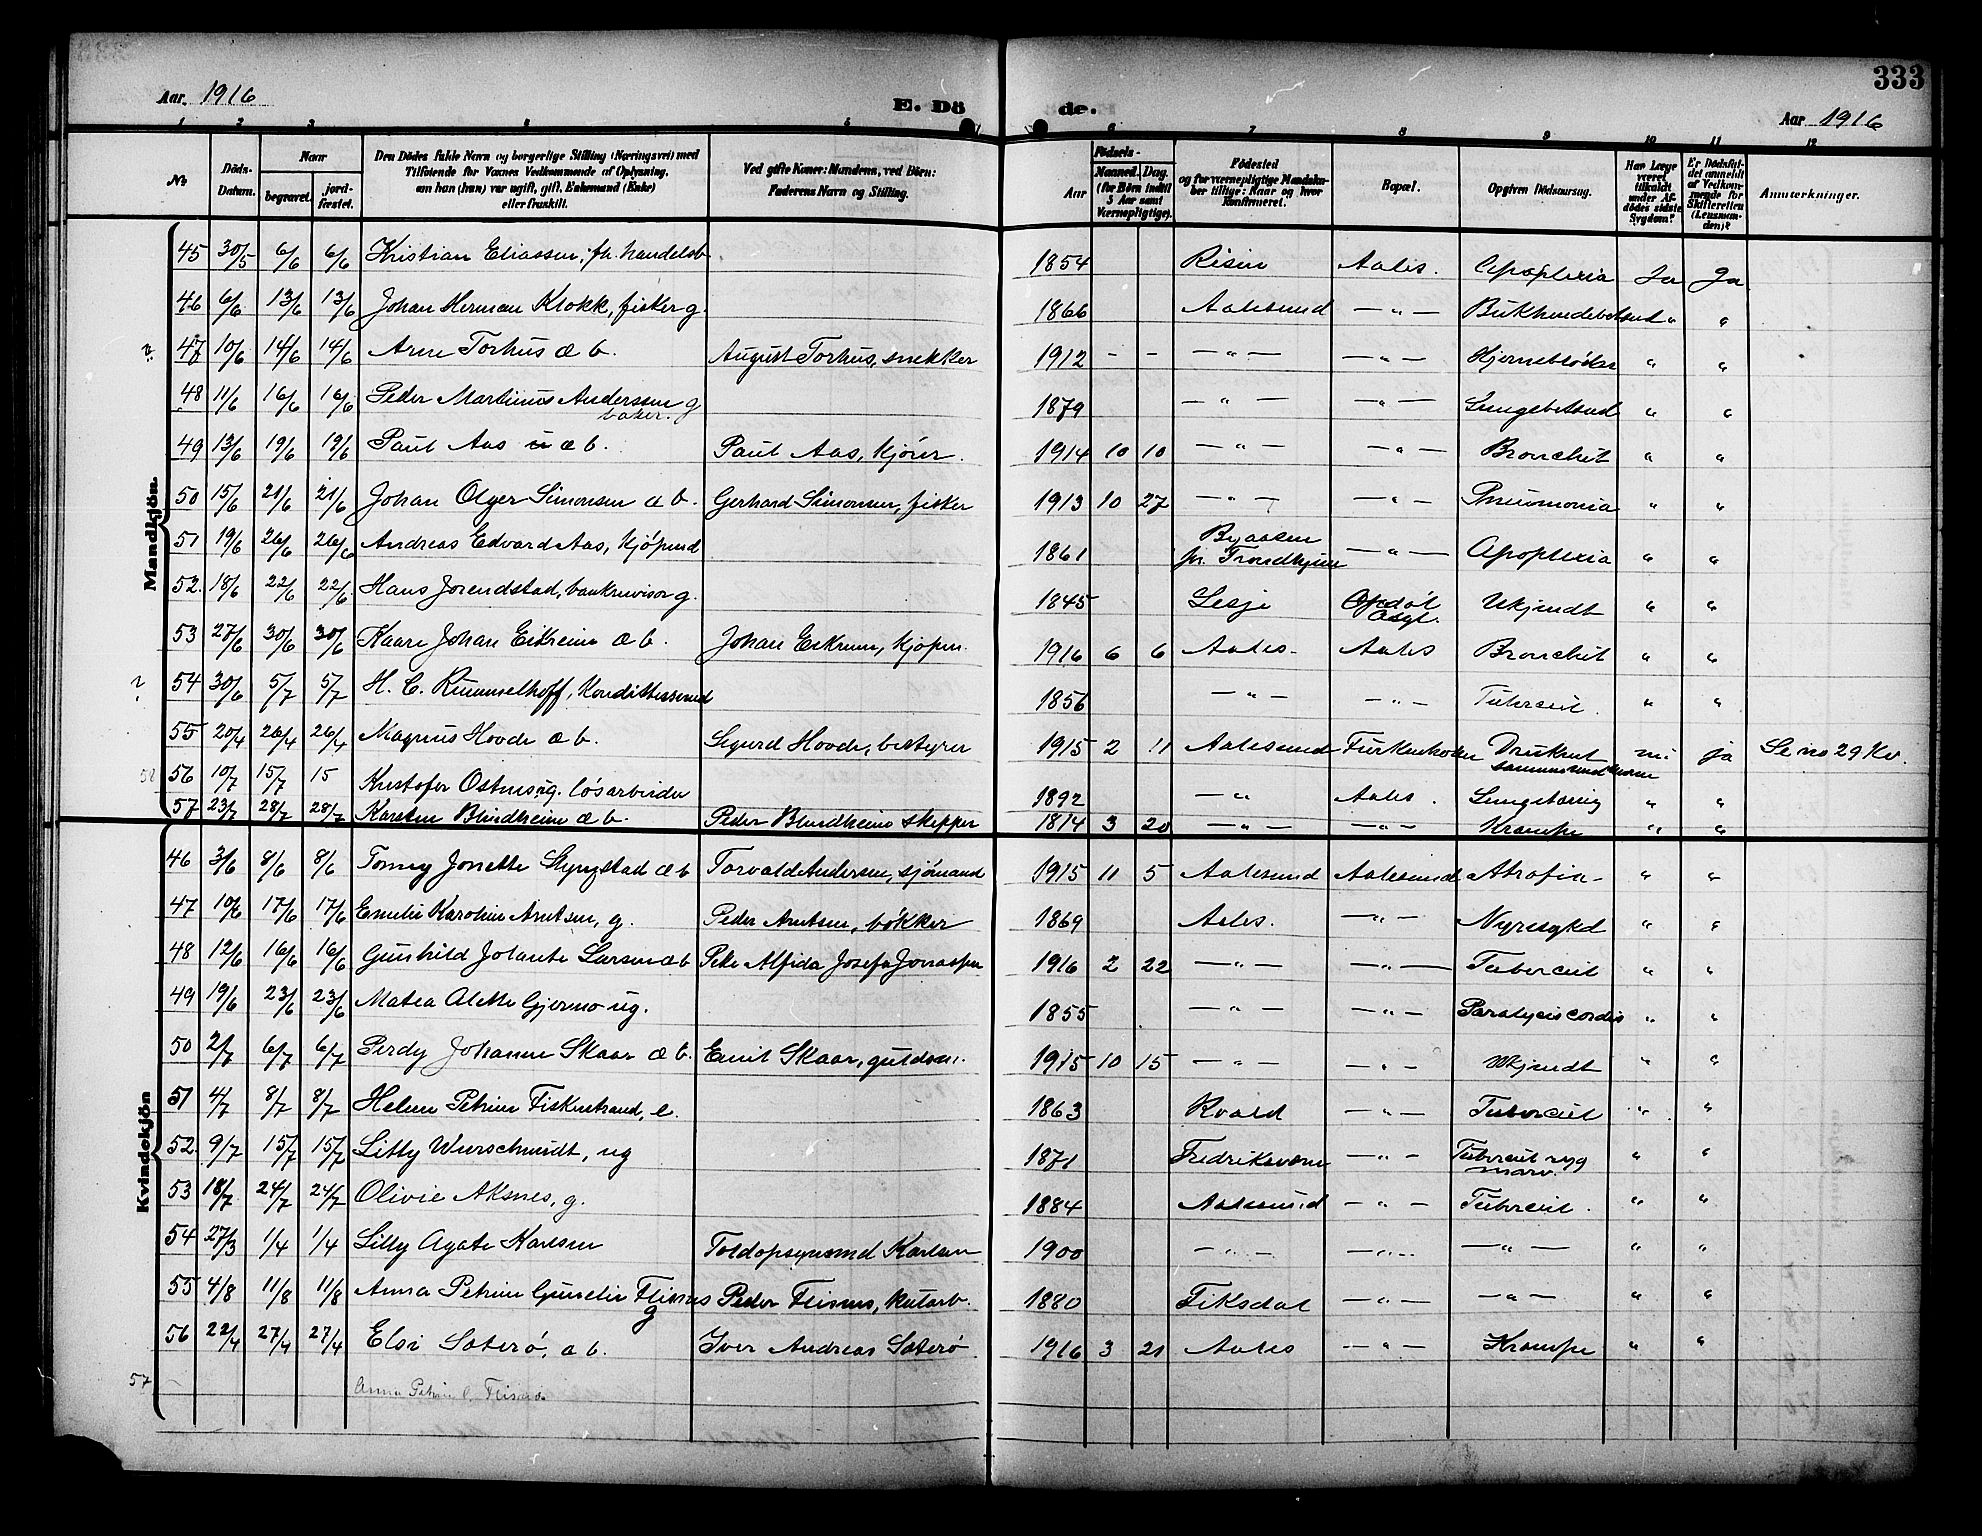 333
Aar. 1916 E. Dö de. Aar 1916
1 2 3 4 5 6 7 8 9 10 11 12
No. Döds-Datum. Naar begravet. jord-fæstet. Den Dödes fulde Navn og borgerlige Stilling (Næringsvei) med Tilföiende for Voxnes Vedkommende af Oplysning, om han (hun) var ugift, gift, Enkemand (Enke) eller fraskilt. Ved gifte Koner: Mandens, ved Börn: Faderens Navn og Stilling. Födsels- Aar Maaned. Dag. (for Börn indtil 3 Aar samt Værnepligtige). Födested og for værnepligtige Mandskaber tillige: Naar og hvor Konfirmeret. Bopæl. Opgiven Dödsaarsag. Har Læge været tilkaldt under Afdödes sidste Sygdom? Er Dödsfaldet anmeldt af Vedkommende for Skifteretten (Lensmanden)? Anmærkninger.
Mandkjön.
45 30/5 6/6 6/6 Kristian Eliassen, fh. handelsb. 1854 Risör Aales. Apoplexia Ja Ja
46 6/6 13/6 13/6 Johan Herman Klokk, fisker g. 1866 Aalesund — " — Bukhindebetend " "
47 10/6 14/6 14/6 Arne Torhus æ b. August Torhus, snekker 1912 - - — " — — " — Hjerneblødn " "
48 11/6 16/6 16/6 Peder Martinus Anderssen g baker. 1879 — " — — " — Lungebetend " "
49 13/6 19/6 19/6 Paul Aas u æ b. Paul Aas, kjører. 1914 10 10 — " — — " — Bronchit " "
50 15/6 21/6 21/6 Johan Olger Simonsen æ b. Gerhard Simonsen, fisker 1913 10 27 — " — — " — Pneumonia " "
51 19/6 26/6 26/6 Andreas Edvard Aas, kjøpmd 1861 Byaasen pr. Trondhjem — " — Apoplexia " "
52. 18/6 22/6 22/6 Hans Jorendstad, bankrevisor g. 1845 Lesje Opdøl Ukjendt " "
53 27/6 30/6 30/6 Kaare Johan Eikrem æ b. Johan Eikrem, kjøpm. 1916 6 6 Aales. Aales Bronchit " "
54 30/6 5/7 5/7 H. C. Rummelhoff, Konditter 1856 — " — — " — Tubercul. " "
55 20/4 26/4 26/4 Magnus Hovde æ b. Sigurd Hovde, bestyrer 1915 2 11 Aalesund Druknet nei ja Se no 29 Kv.
56 10/7 15/7 15 Kristofer Ostnes, ug. løsarbeider 1892 — " — Aales. " "
57 23/7 28/7 28/7 Karsten Blindheim æ b. Peder Blindheim skipper 1814 3 20 — " — — " — Krampe " "
Kvindekjön
46 3/6 8/6 8/6 Tomy Jonette Slyngstad æ b Torvald Andersen, sjømand 1915 11 5 Aalesund Aalesund Atrofia - " "
47 10/6 17/6 17/6 Emelie Karoline Arntsen, g. Peder Arntsen, bøkker 1869 Aales. — " — Nyresykd " "
48 12/6 16/6 16/6 Gunhild Jolante Larsen æ b Pike Alfida Josefa Jonassen 1916 2 22 — " — — " — Tubercul " "
49 19/6 23/6 23/6 Matea Alette Gjermo ug. 1855 — " — — " — Paralysis cordis " "
50 2/7 6/7 6/7 Perdy Johanne Skaar æ b. Emil Skaar, guldsm. 1915 10 15 — " — — " — Ukjendt " "
51 4/7 8/7 8/7 Helene Petrine Fiskerstrand, e. 1863 Roald — " — Tubercul " "
52. 9/7 15/7 15/7 Litty Wurschmidt, ug 1871 Fredriksværn — " — Tubercul ryg marv. " "
53 18/7 24/7 24/7 Olivie Aksnes, g. 1884 Aalesund — " — Tubercul. " "
54 27/3 1/4 1/4 Lilly Agate Karlsen Toldopsynsmd Karlsen 1900 — " — — " — — " — " "
55 4/8 11/8 11/8 Anna Petrine Gunelie Flisnes g Peder Flisnes, kularb. 1880 Fiksdal — " — — " — " "
56 22/4 27/4 27/4 Elsi Saterø, æ b. Iver Andreas Saterø 1916 3 21 Aales — " — Krampe " "
57 Anna Petrine